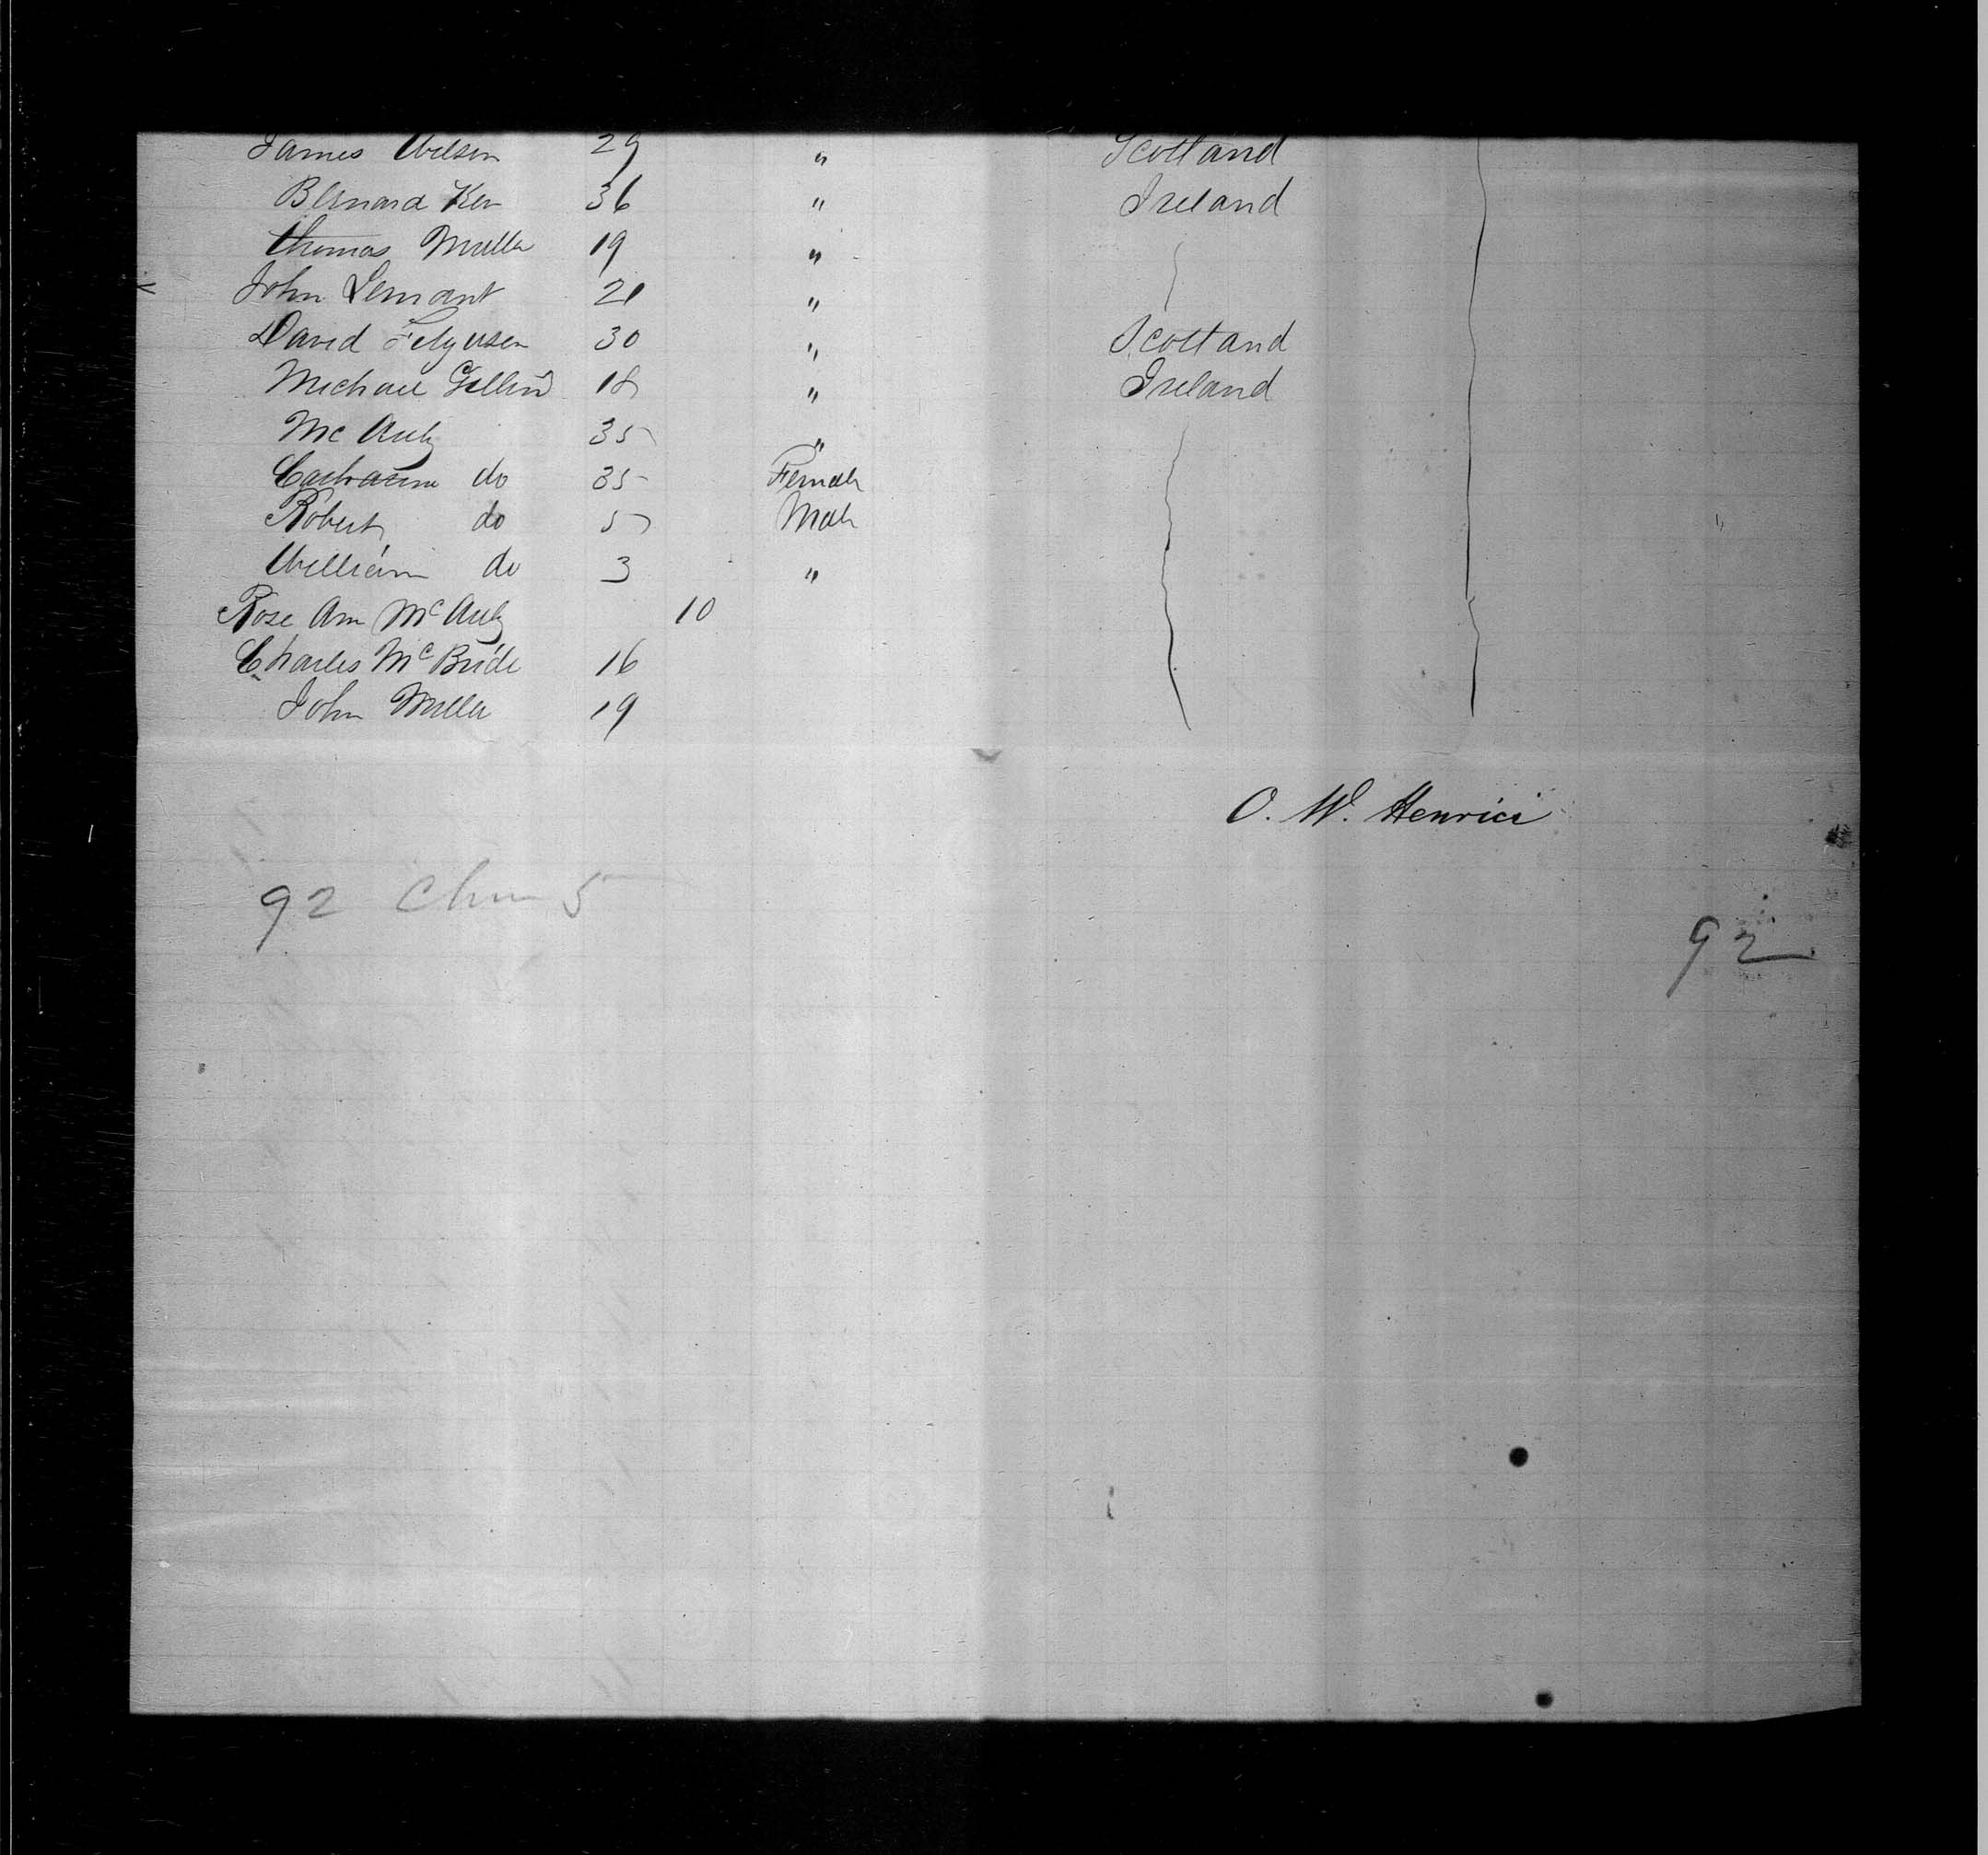 James Wilson 29 " Scotland
Bernard Kerr 36 " Ireland
Thomas Miller 19 "
John Lemant 21 "
David Fergusen 30 " Scotland
Michael 18 " Ireland
Mc Auly 35 "
Catharine do 35 Female
Robert do 5 Male
William do 3 "
Rose Ann McAuly 10
Charles McBride 16
John Miller 19
O. W. Henrici
92 Chn 5
92